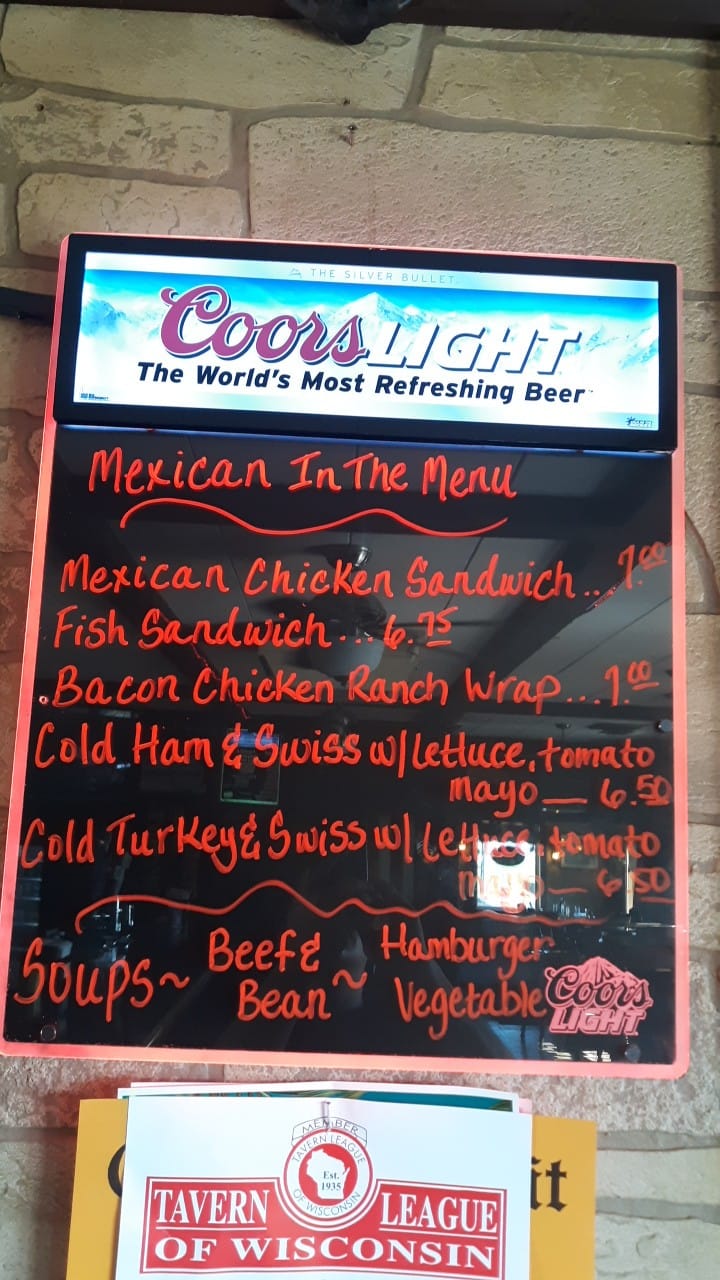 THE SILVER BULLET.
Coors LIGHT
The World's Most Refreshing Beer™
Mexican In The Menu
Mexican Chicken Sandwich.. 7.00
Fish Sandwich... 6.75
.Bacon Chicken Ranch Wrap...7.00
Cold Ham & Swiss w/Lettuce, tomato
mayo — 6.50
Cold Turkey & Swiss w/ Lettuce, tomato
mayo — 6.50
Soups~ Beef & ~ Hamburger
Bean Vegetable
Coors
LIGHT
MEMBER
TAVERN LEAGUE
Est.
1935
OF WISCONSIN
TAVERN LEAGUE
OF WISCONSIN
it